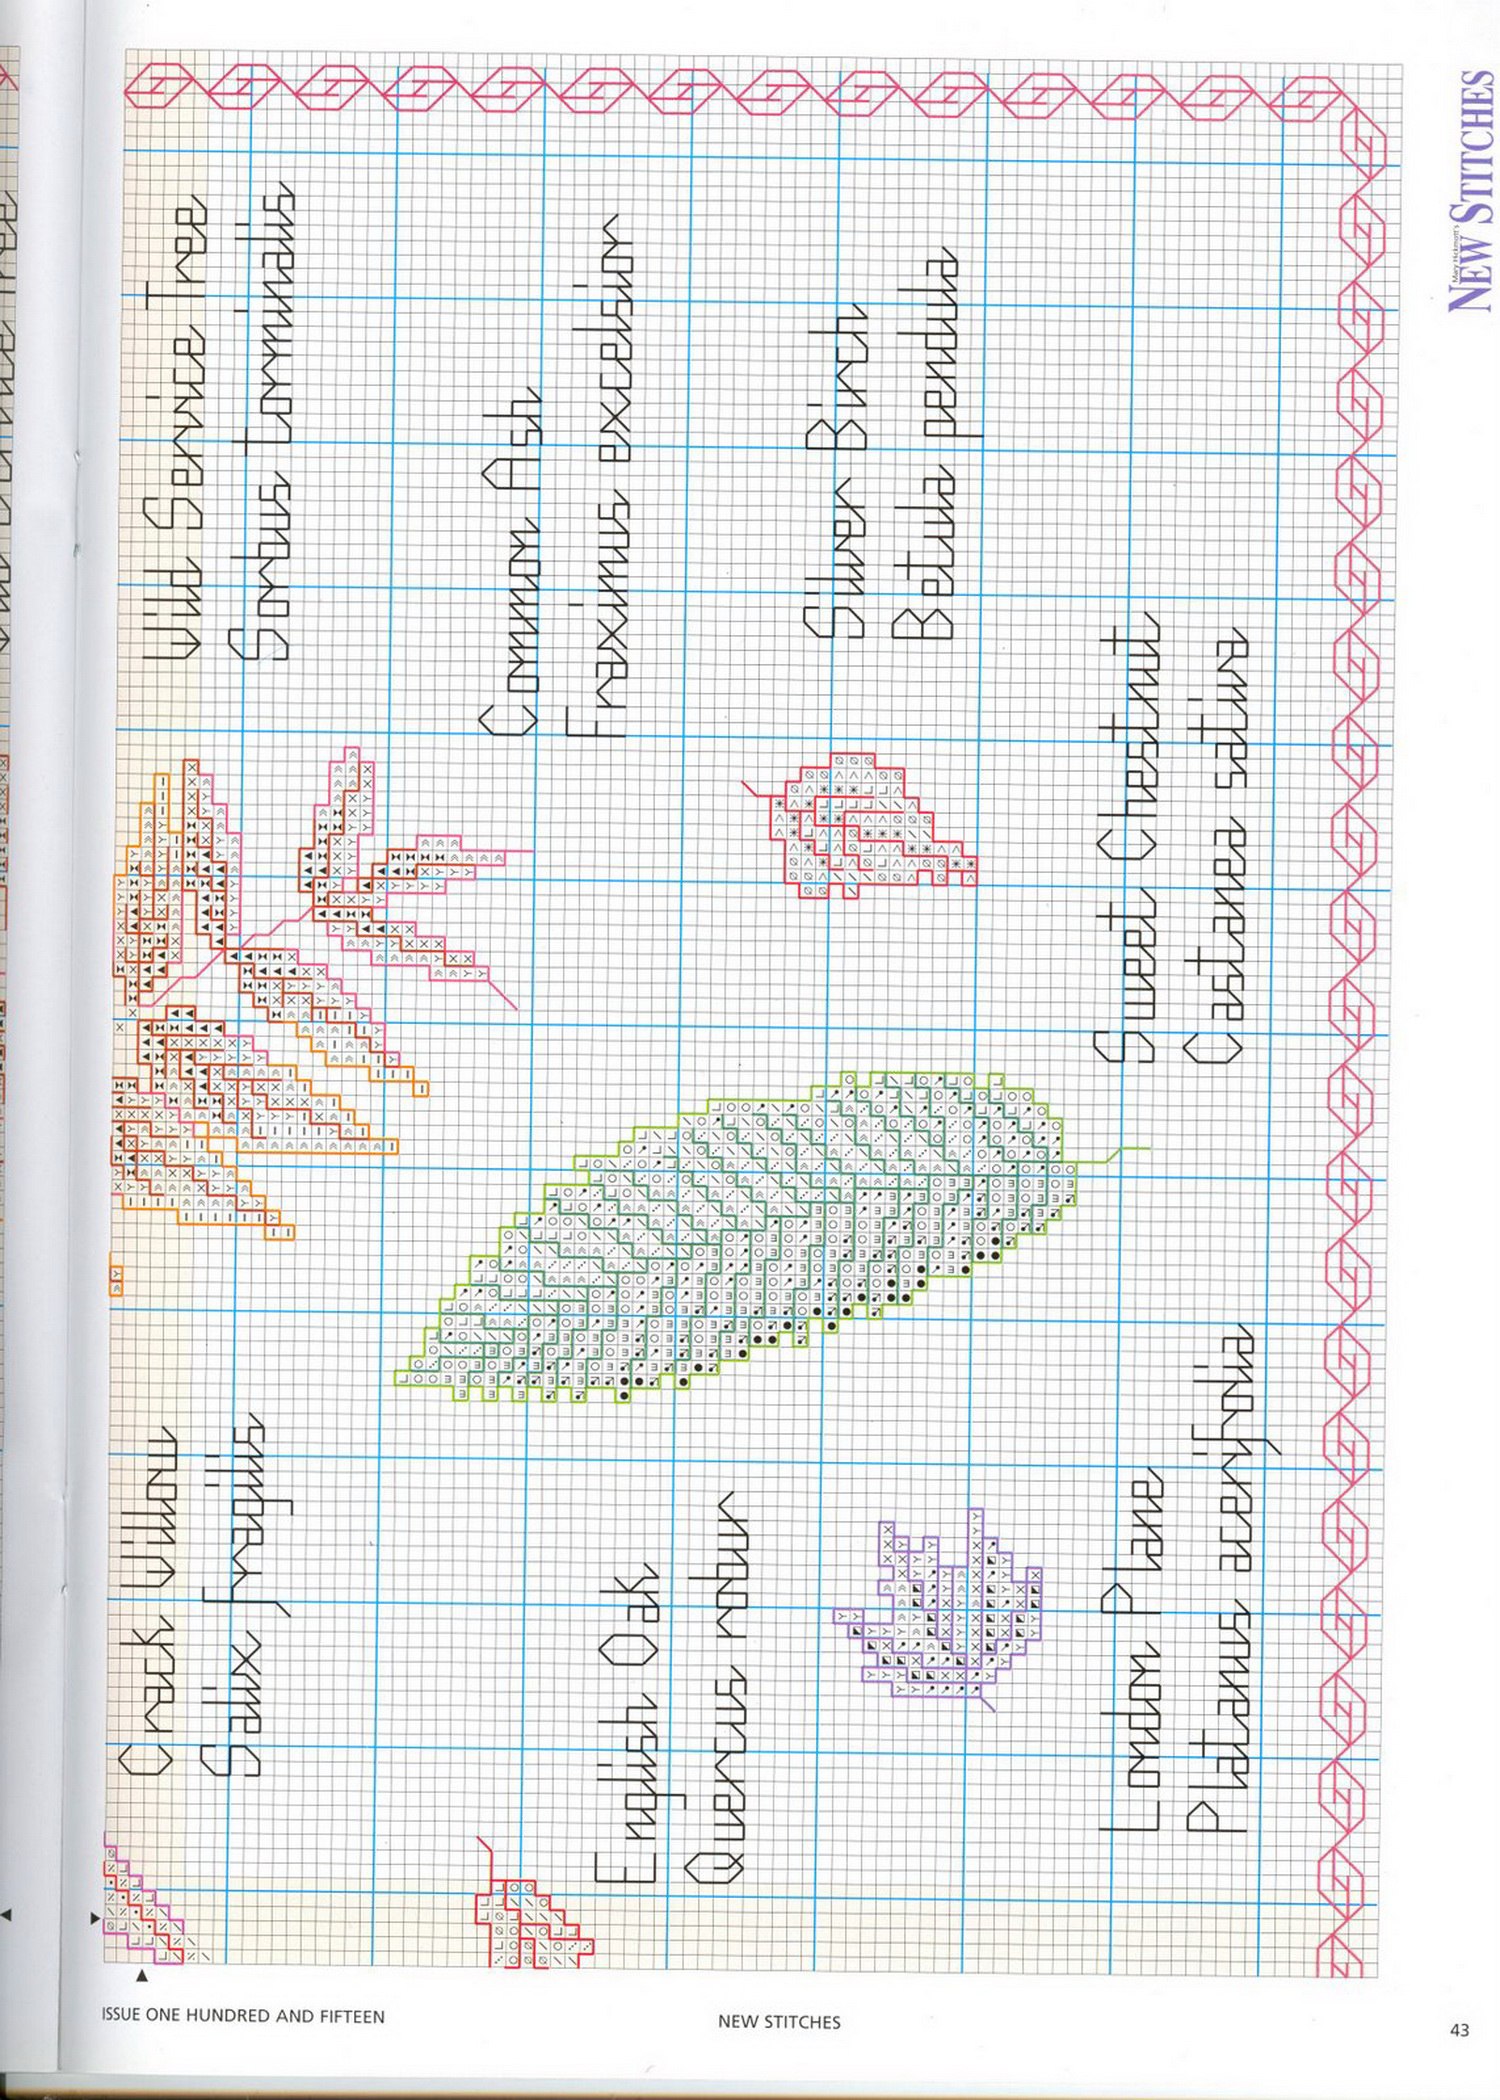 Mary Hickmott's
NEW STITCHES
Crack Willow
Salix fragilis
Wild Service Tree
Sorbus torminalis
Common Ash
Fraxinus excelsior
English Oak
Quercus robur
Silver Birch
Betula pendula
Sweet Chestnut
Castanea sativa
London Plane
Platanus acerifolia
ISSUE ONE HUNDRED AND FIFTEEN
NEW STITCHES
43